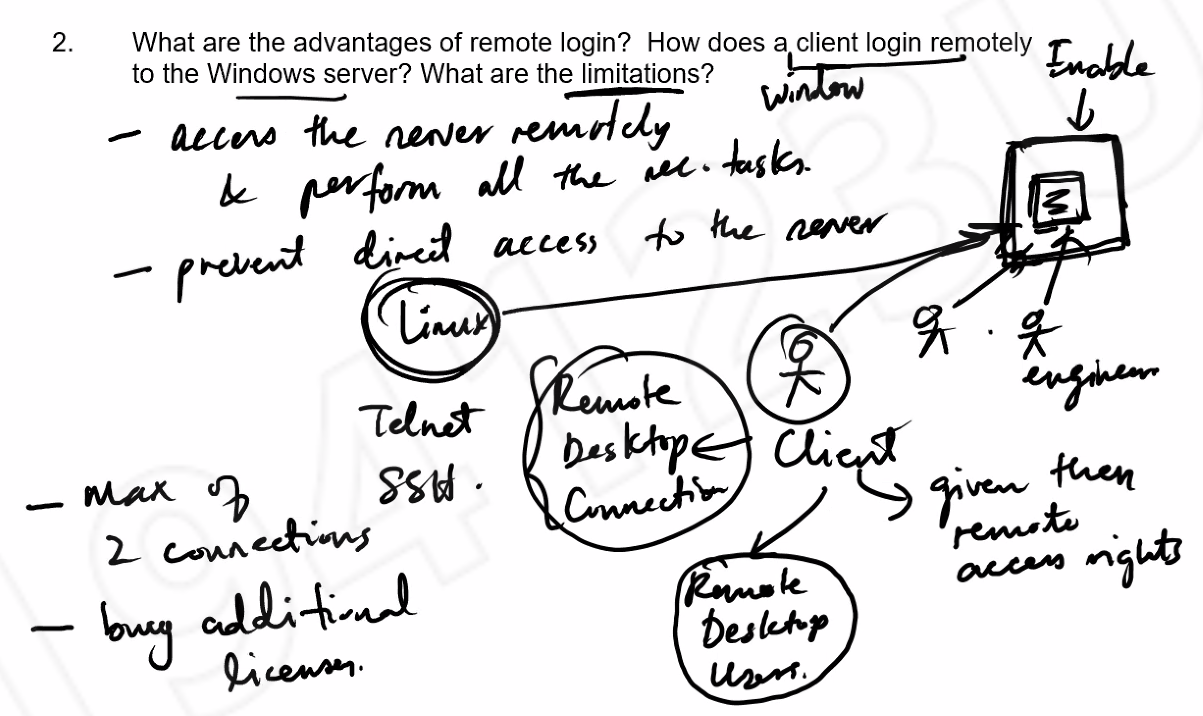 2. What are the advantages of remote login? How does a client login remotely
to the Windows server? What are the limitations?
window
Enable
- access the server remotely
& perform all the nec. tasks.
- prevent direct access to the server
Linux
Telnet
SSH.
Remote
Desktop
Connection
Client
engineer
given them
remote
access rights
Remote
Desktop
Users.
- Max of
2 connections
- buy additional
licenses.